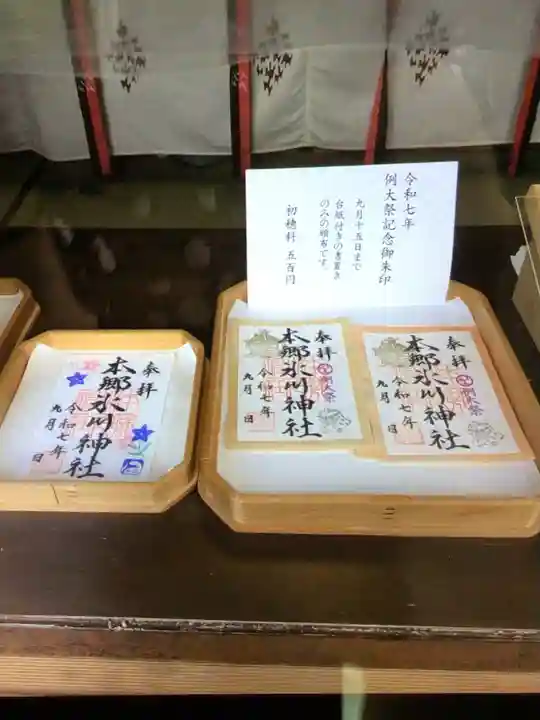 令和七年
例大祭記念御朱印
九月十五日まで
台紙付きの書置き
のみの頒布です。
初穂料 五百円
奉拝
本郷氷川神社
令和七年
九月 日
例大祭
奉拝
本郷氷川神社
令和七年
九月 日
奉拝
本郷氷川神社
令和七年
九月 日
例大祭